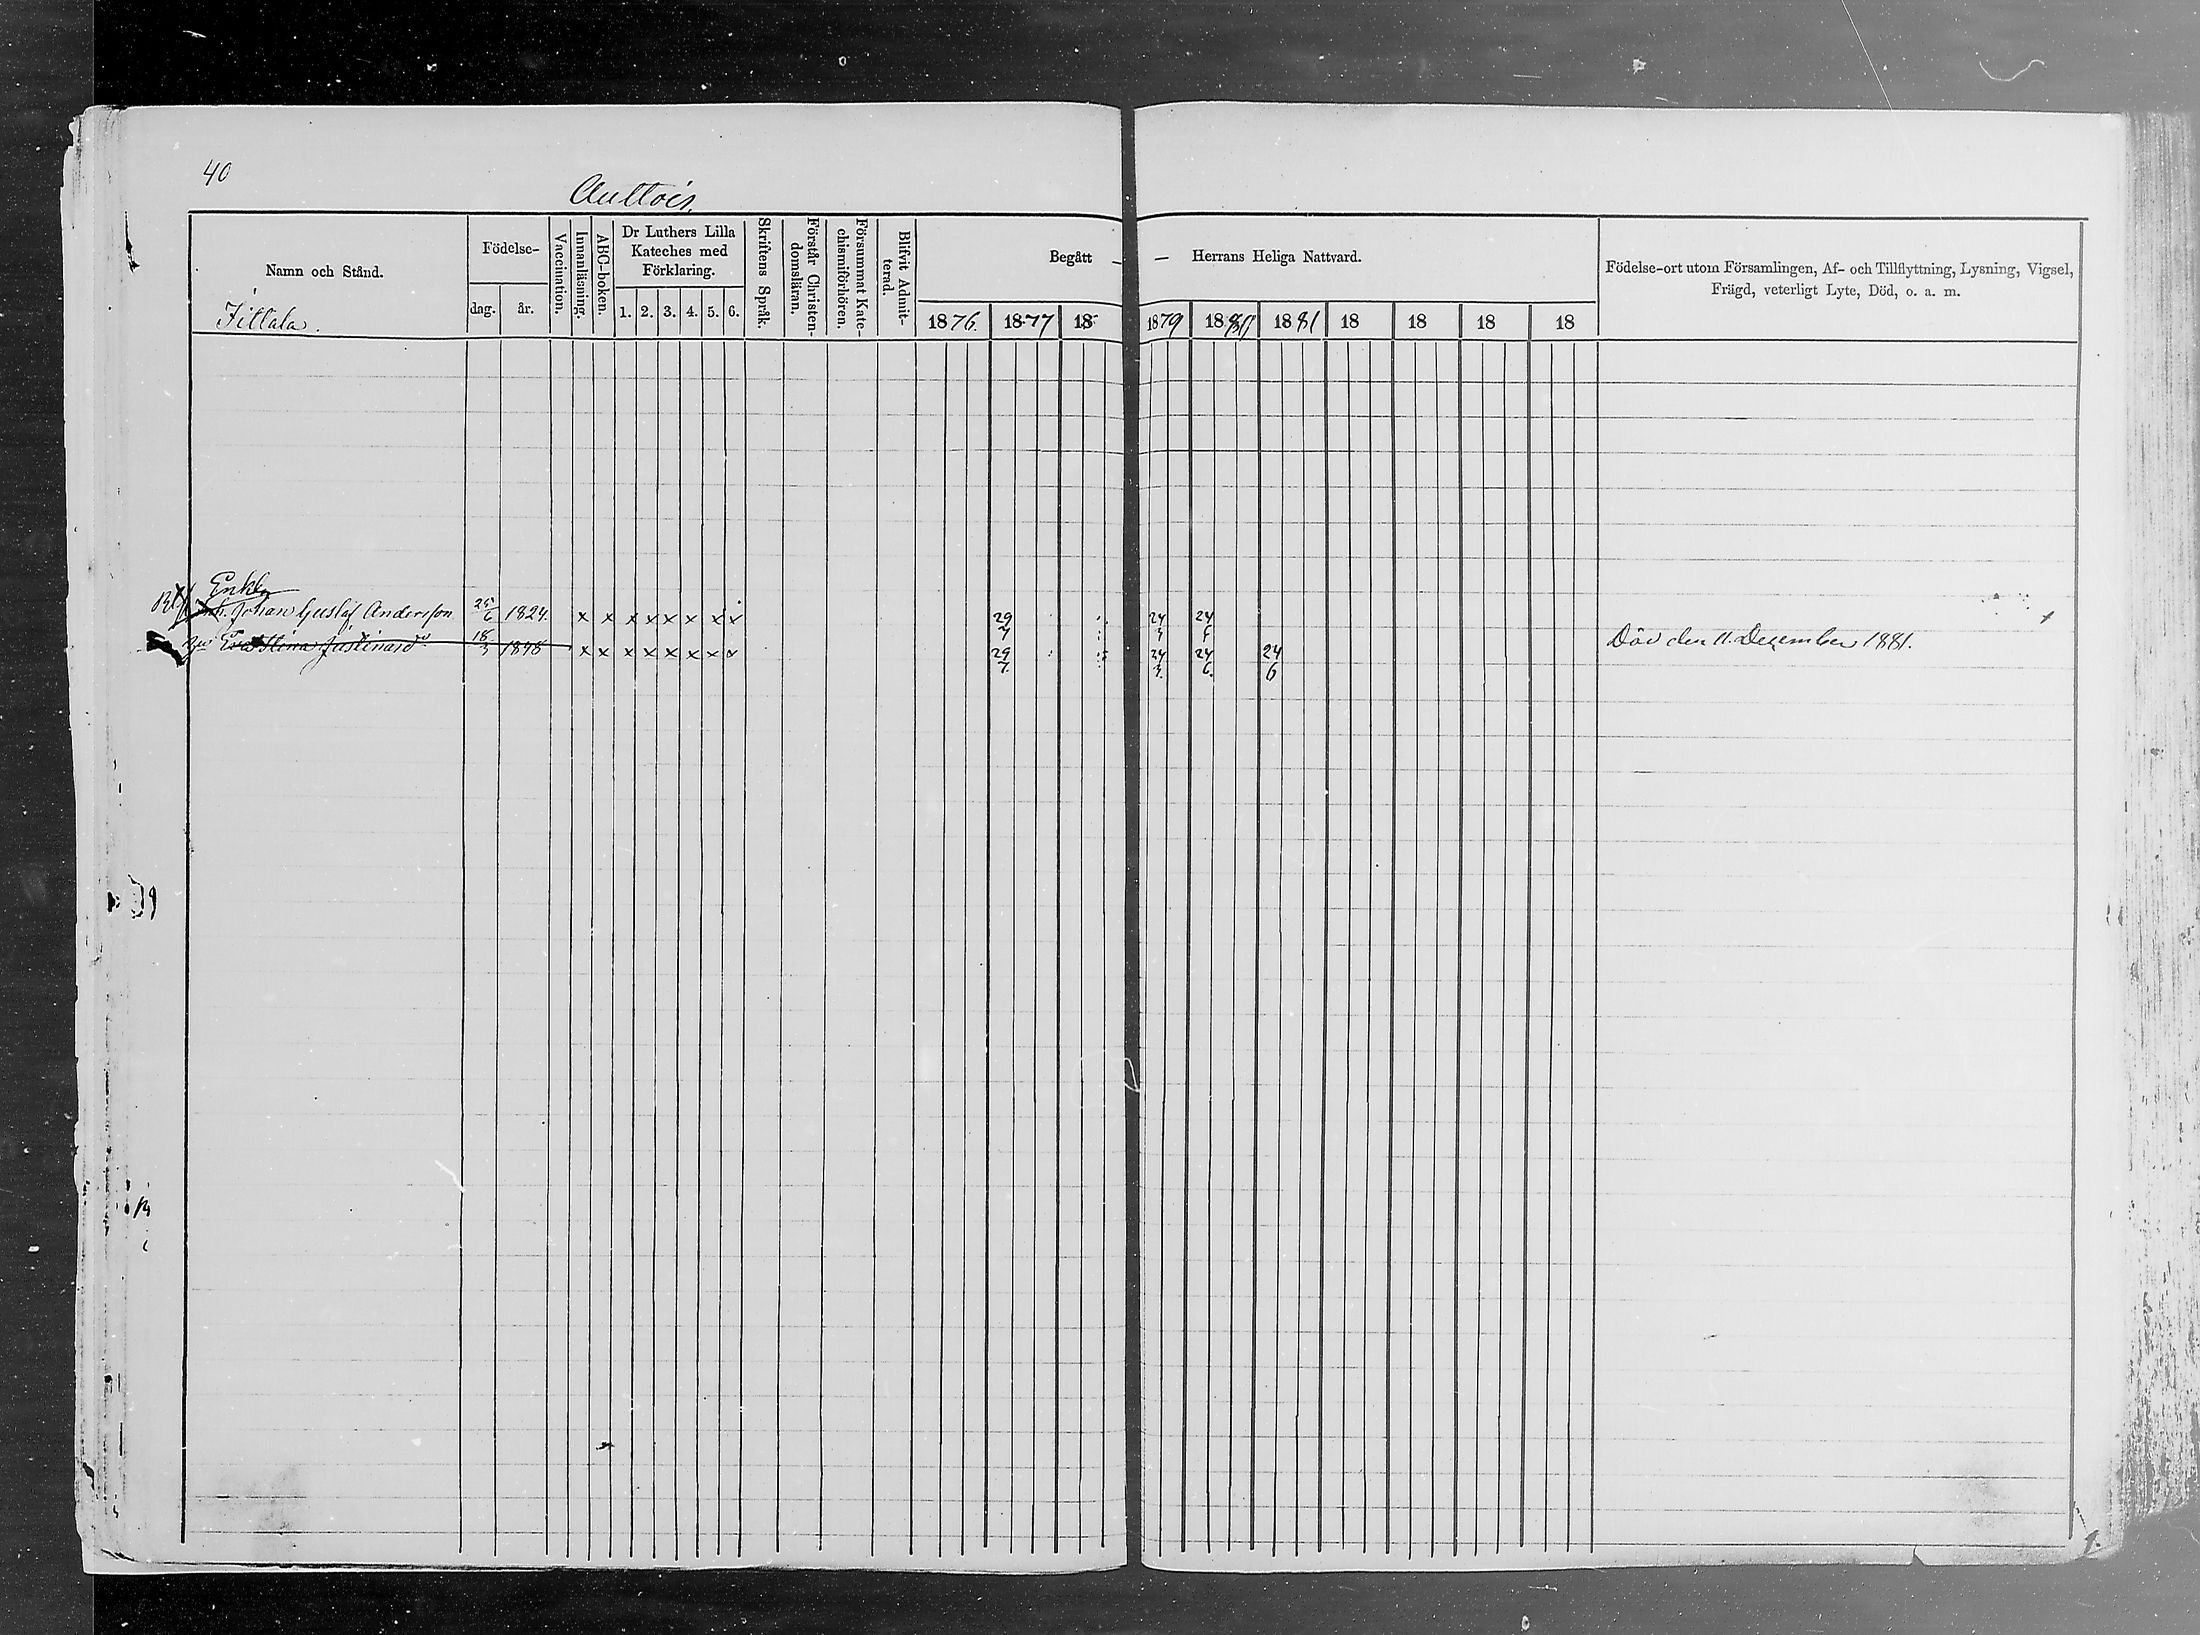 40
Auttois.
Namn och Stånd.
Födelse-
dag.
år.
Vaccination.
Innanläsning.
ABC-boken.
Dr Luthers Lilla
Kateches med
Förklaring.
1. 2. 3. 4. 5. 6.
Skriftens Språk.
Förstår Christen-
domsläran.
Försummat Kate-
chismiförhören.
Blifvit Admit-
terad.
Begått — — Herrans Heliga Nattvard.
1876. 1877 18 1879 1880 1881 18 18 18 18
Födelse-ort utom Församlingen, Af- och Tillflyttning, Lysning, Vigsel,
Frägd, veterligt Lyte, Död, o. a. m.
Jillala.
Enkl.
Johan Gustaf Andersson 25/6 1824. x x x x x x x x 29/7 24/3 24/6
Eva Stina Justina 18/3 1898 x x x x x x x x 29/7. 24/3. 24/6. 24/6 Död den 11. December 1881.